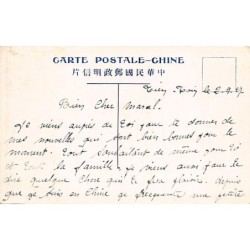 CARTE POSTALE-CHINE
片信明政郵國民華中
Tien Tsin le 2.9.27
Bien Cher Marcel.
Je viens auprès de toi pour te donner de
mes nouvelles qui sont bien bonnes pour le
moment. tout souhaitant de même pour toi
et toute la famille. je viens aussi faire te
dire quelque chose qui te fera plaisir. depuis
que je suis en Chine je fréquente une petite